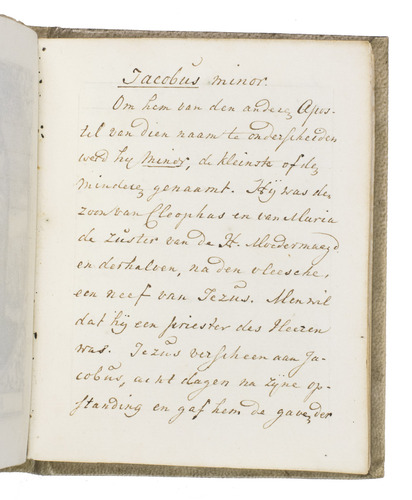 Jacobus minor.
Om hem van den andere, Apos-
tel van dien naam te onderscheiden
werd hy Minor, de kleinste of de,
mindere, genaamt. Hÿ was de
zoon van Cleophas en van Maria
de zuster van de H. Moedermaegd
en derhalven, na den vleesche,
een neef van Jezus. Men wil
dat hÿ een priester des Heeren
was. Jezus verscheen aan Ja-
cobus, acht dagen na zÿne op-
standing en gaf hem de gave, der